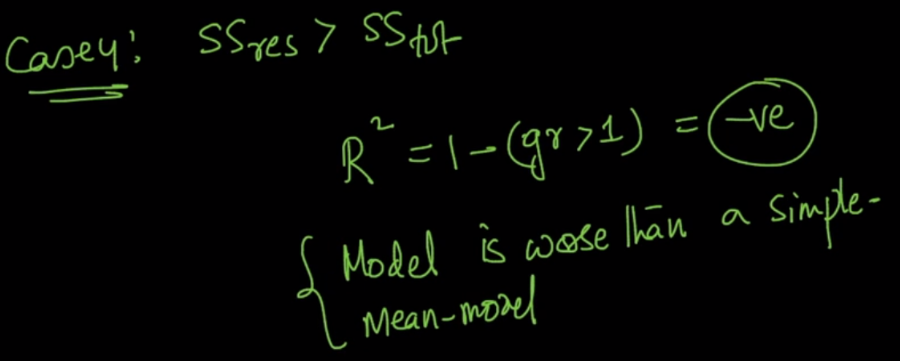 Case4: SSres > SStot
R² = 1 - (gr > 1) = -ve
Model is wose than a simple-
Mean-model